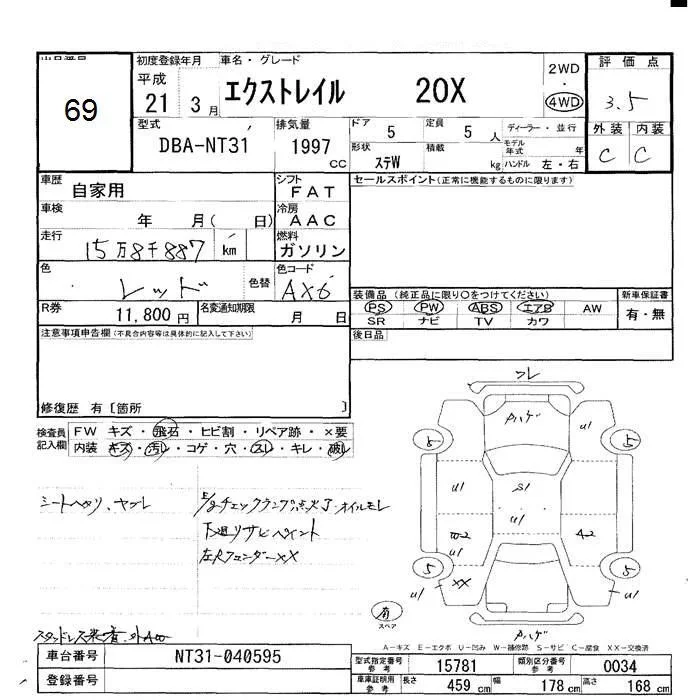 出品番号 初度登録年月 車名・グレード 2WD 評価点
69 平成 21 3月 エクストレイル 20X 4WD 3.5
型式 排気量 ドア 定員 ディーラー・並行 外装 内装
DBA-NT31 1997 CC 5 5人 モデル年式 年 C C
形状 積載 kg ハンドル 左・右
ステW
車歴 自家用 シフト FAT セールスポイント(正常に機能するものに限ります)
車検 年 月( 日) 冷房 AAC
走行 15万8千887 km 燃料 ガソリン
色 レッド 色替 色コード AX6
装備品 (純正品に限り○をつけてください) 新車保証書
R券 11,800円 名変通知期限 月 日
PS PW ABS エアB AW 有・無
SR ナビ TV カワ
注意事項申告欄(不具合内容等は具体的に記入して下さい) 後日品
修復歴 有〔箇所 〕
検査員記入欄 FW キズ・飛石・ヒビ割・リペア跡・×要
内装 キズ・汚レ・コゲ・穴・スレ・キレ・破レ
シートヘタリ、ヤブレ
E/gチェックランプ点灯、オイルモレ
下廻リサビペイント
左Rフェンダー××
フレ
Pハゲ
U1
5 5
U1 S1 U1
W2 U1 A2
5 5
U1 XX U1
Pハゲ
有
スペア
A-キズ E-エクボ U-凹み W-補修跡 S-サビ C-腐食 XX-交換済
車台番号 NT31-040595
登録番号
型式指定番号 参考 15781 類別区分番号 参考 0034
車庫証明用 参考 長さ 459 cm 幅 178 cm 高さ 168 cm